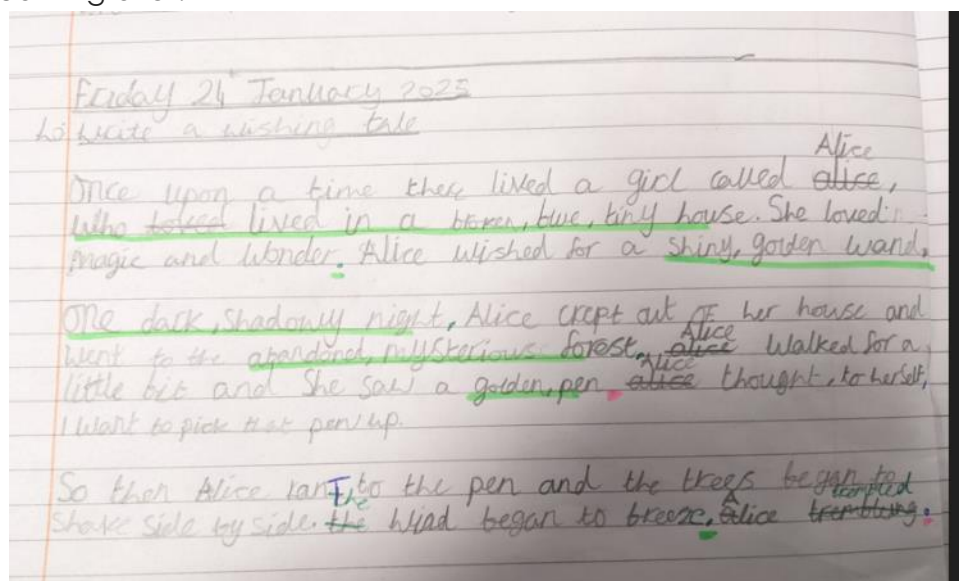 Friday 24 January 2025
Lo: write a wishing tale
Alice
Once upon a time there lived a girl called alice,
Who lived in a broken, blue, tiny house. She loved
magic and wonder. Alice wished for a shiny, golden wand.
One dark, shadowy night, Alice crept out OF her house and
Alice
went to the abandoned, mysterious forest. alice Walked for a
Alice
little bit and She saw a golden, pen. alice thought, to herself,
I want to pick that pen up.
So then Alice ran to the pen and the trees began to
The A trembled
shake side by side. the Wind began to breeze. alice trembling.